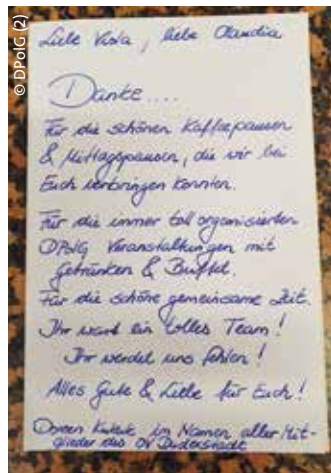 © DPolG (2)
Liebe Viola, liebe Claudia
Danke....
Für die schönen Kaffeepausen
& Mittagspausen, die wir bei
Euch verbringen konnten.
Für die immer toll organisierten
DPolG Veranstaltungen mit
Getränken & Buffet.
Für die schöne gemeinsame Zeit.
Ihr wart ein tolles Team!
Ihr werdet uns fehlen!
Alles Gute & Liebe für Euch!
Doreen im Namen aller Mit-
glieder des OV Duderstadt